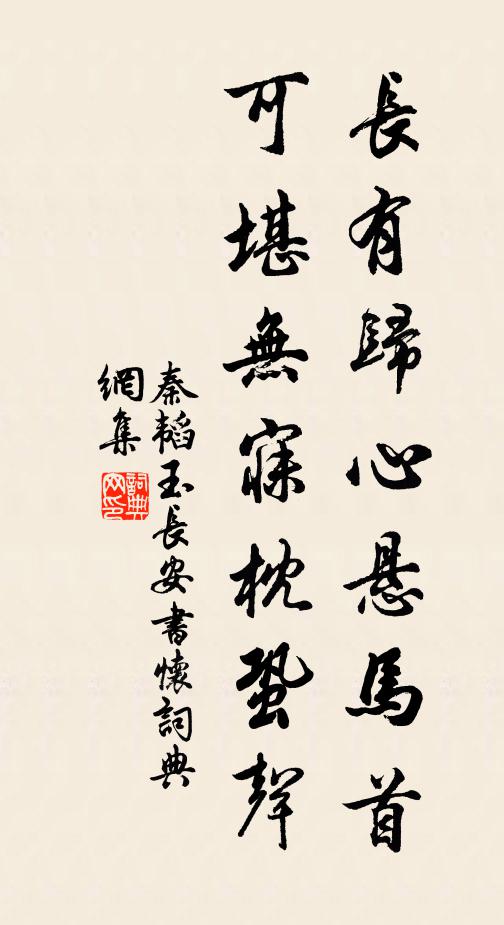 長有歸心悬馬首
可堪無寐枕蛩聲
秦韬玉長安書懷詞典
網集
詞典
网印